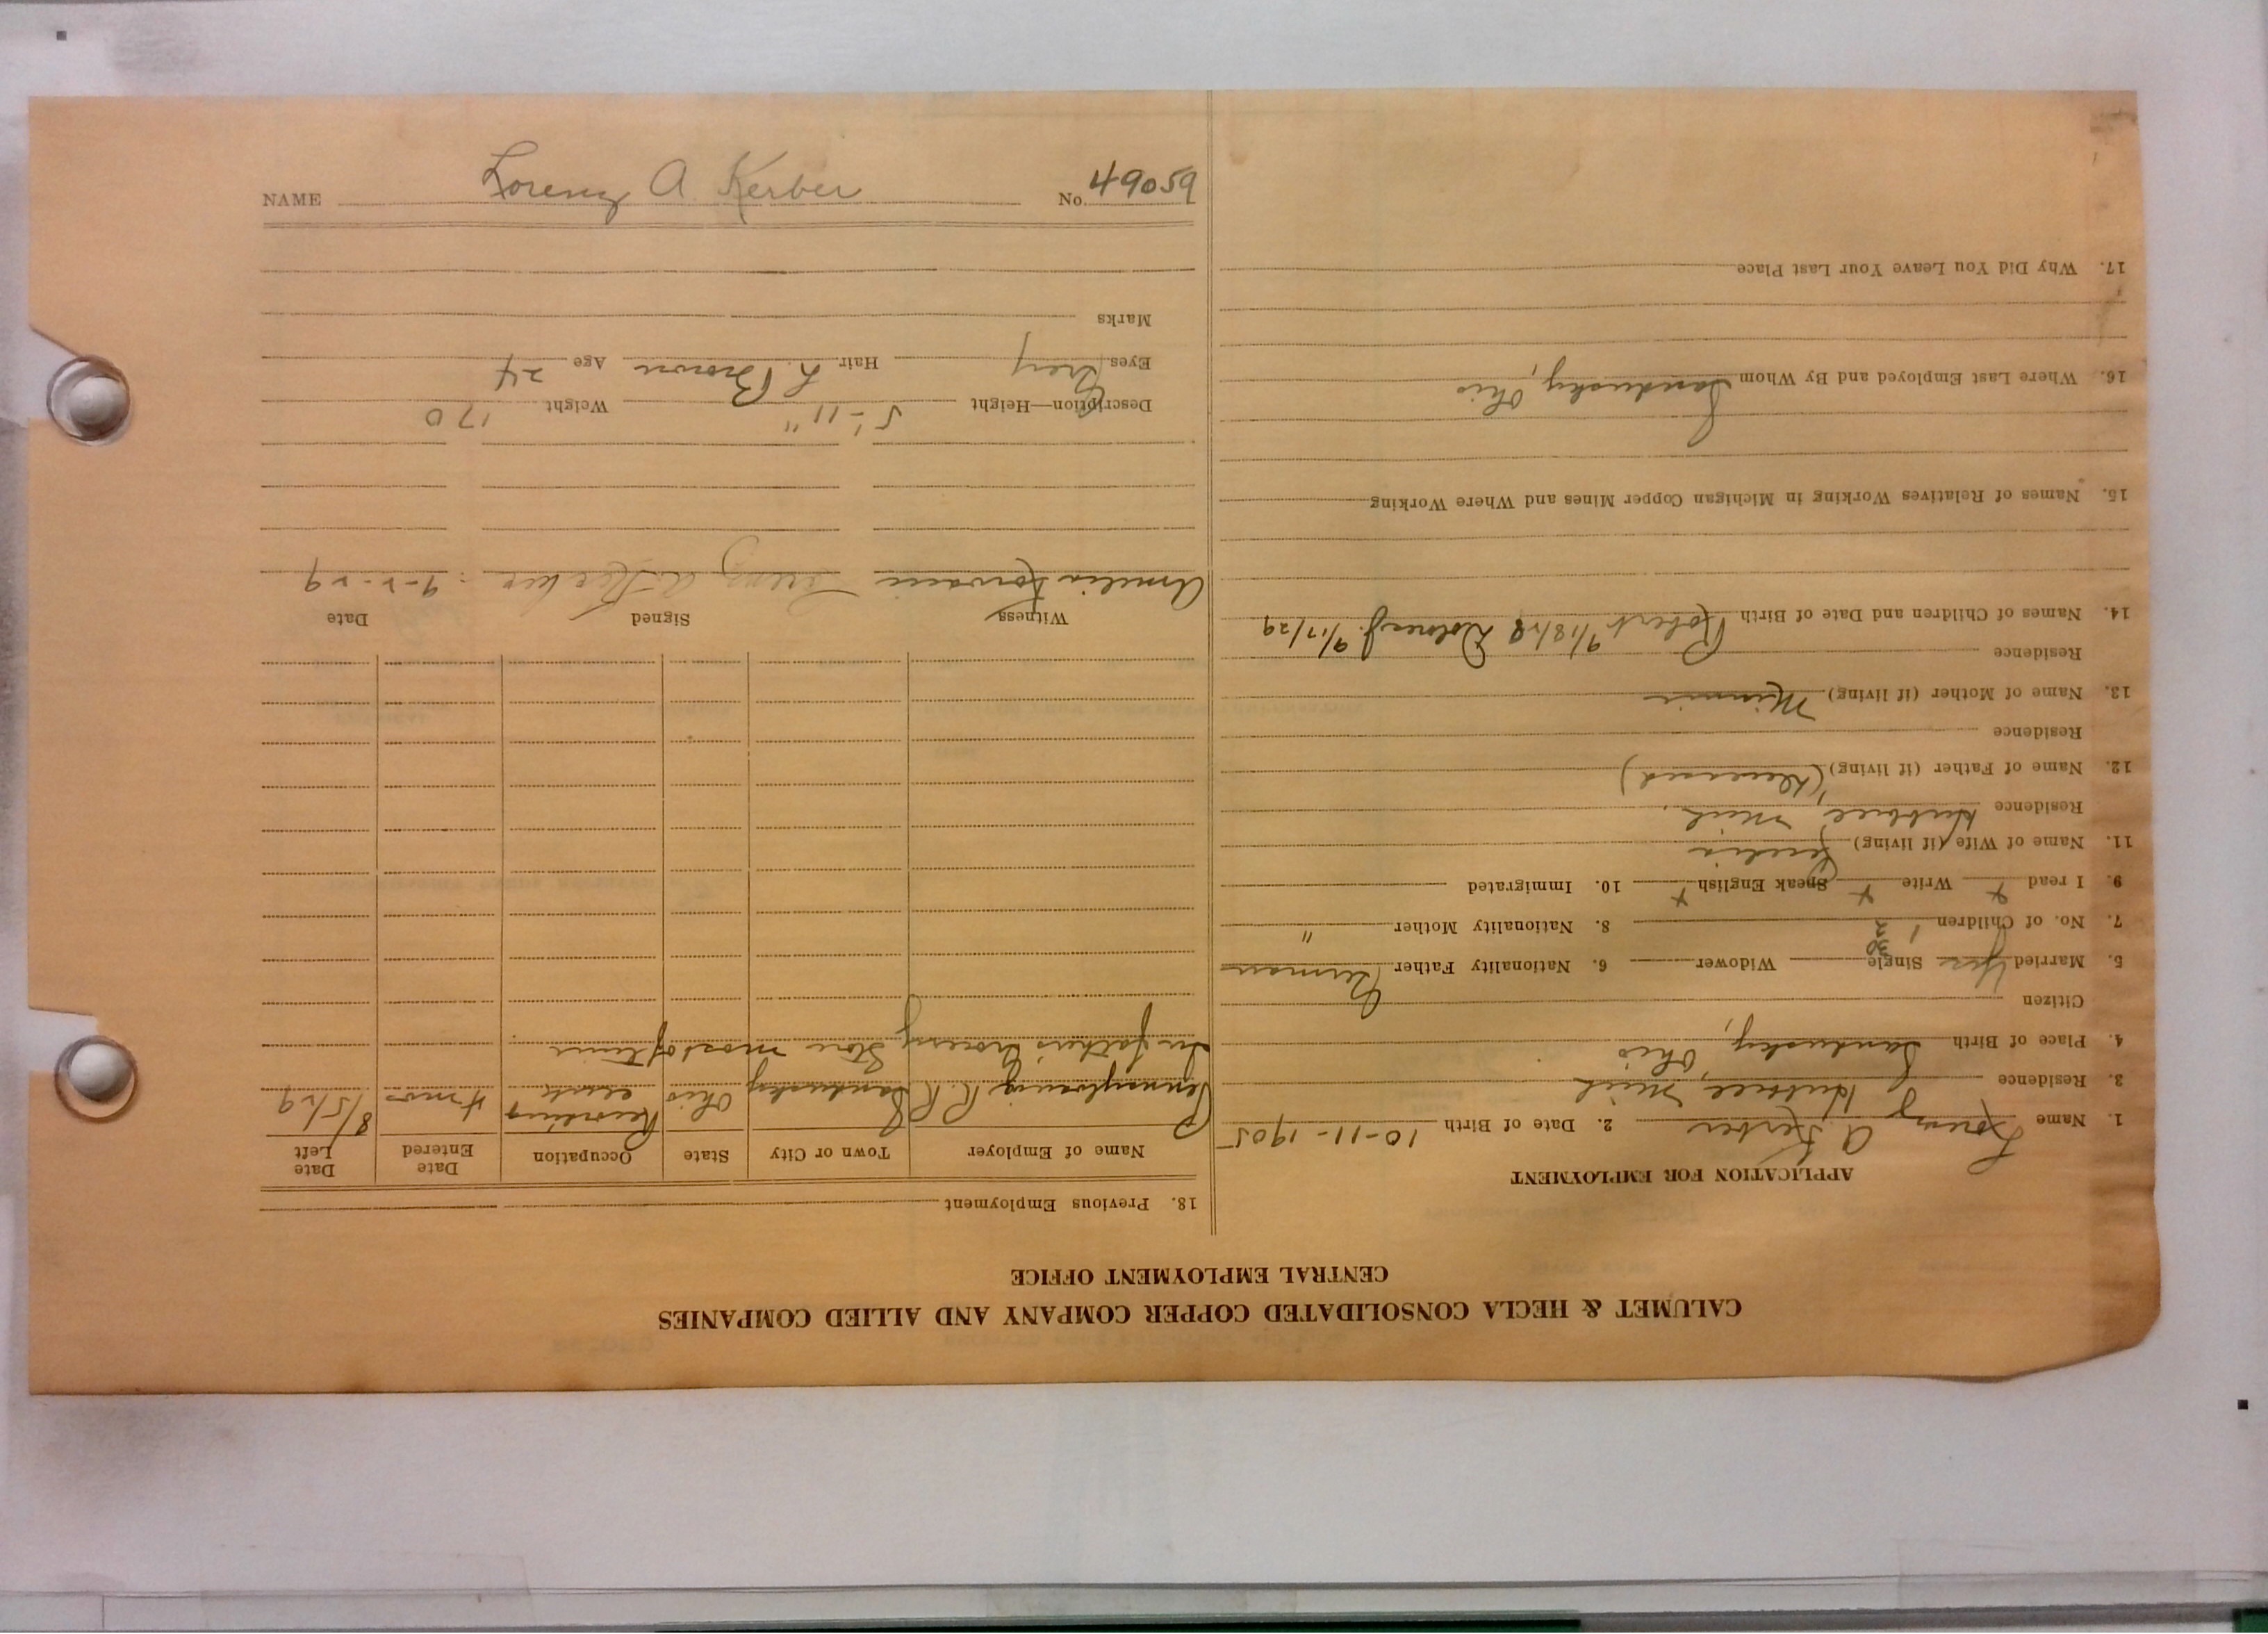 CALUMET & HECLA CONSOLIDATED COPPER COMPANY AND ALLIED COMPANIES
CENTRAL EMPLOYMENT OFFICE
APPLICATION FOR EMPLOYMENT
1. Name Lorenz A Kerber 2. Date of Birth 10-11-1905
3. Residence Hubbell, Mich
4. Place of Birth Sandusky, Ohio
Citizen
5. Married Yes Single Widower 6. Nationality Father German
7. No. of Children 1 2 30 8. Nationality Mother "
9. I read x Write x Speak English x 10. Immigrated
11. Name of Wife (if living) Cecelia
Residence Hubbell, Mich.
12. Name of Father (if living) (Deceased)
Residence
13. Name of Mother (if living) Minnie
Residence
14. Names of Children and Date of Birth Robert 9/18/28 Dolores J. 9/17/29
15. Names of Relatives Working in Michigan Copper Mines and Where Working
16. Where Last Employed and By Whom Sandusky, Ohio
17. Why Did You Leave Your Last Place
18. Previous Employment
Name of Employer Town or City State Occupation Date Entered Date Left
Pennsylvania R R Sandusky Ohio Recording clerk 4 mos 8/5/29
In father's Grocery Store most of time
Witness Signed Date
Amelia Lorenz A Kerber 9-2-29
Description—Height 5'-11" Weight 170
Eyes Grey Hair L. Brown Age 24
Marks
NAME Lorenz A Kerber No. 49059